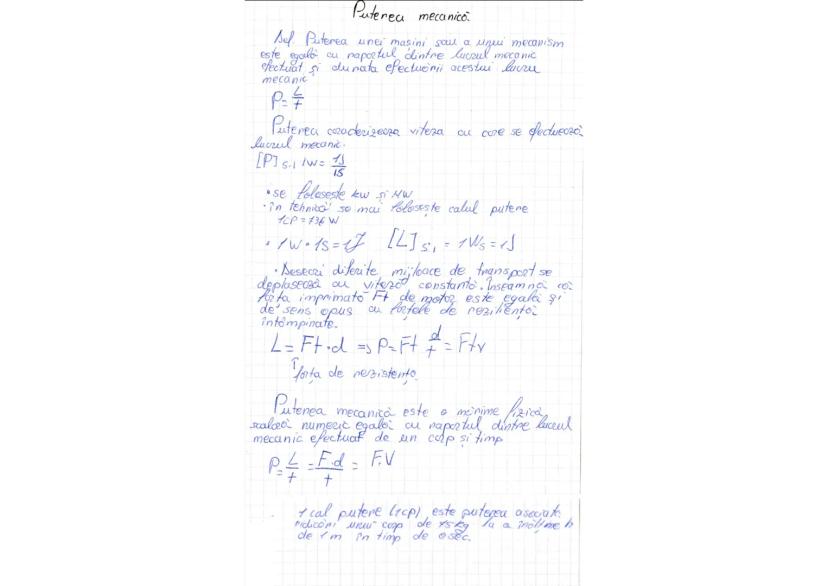 Puterea mecanică
Def. Puterea unei mașini sau a unui mecanism
este egală cu raportul dintre lucrul mecanic
efectuat și durata efectuării acestui lucru
mecanic
P = L/t
Puterea caracterizează viteza cu care se efectuează
lucrul mecanic.
[P] S.I 1W = 1J/1S
• se folosește kW și MW
• în tehnică se mai folosește calul putere
1CP = 736 W
• 1W • 1S = 1J [L] S.I = 1Ws = 1J
• Deseori diferite mijloace de transport se
deplasează cu viteză constantă. Înseamnă că
forța imprimată Ft de motor este egală și
de sens opus cu forțele de reziliență
întâmpinate.
L = Ft • d => P = Ft d/t = Ftv
↑ forța de rezistență.
Puterea mecanică este o mărime fizică
scalară numeric egală cu raportul dintre lucrul
mecanic efectuat de un corp și timp
P = L/t = F.d/t = F.V
1 cal putere (1cp) este puterea asociată
ridicării unui corp de 75 kg la a înălțime h
de 1 m în timp de o sec.